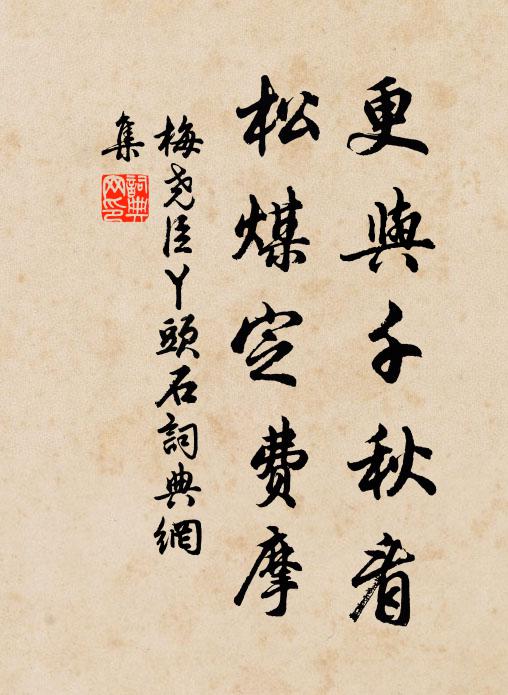 更與千秋看
松煤定費摩
梅堯臣丫頭石詞典網
集
詞典网印